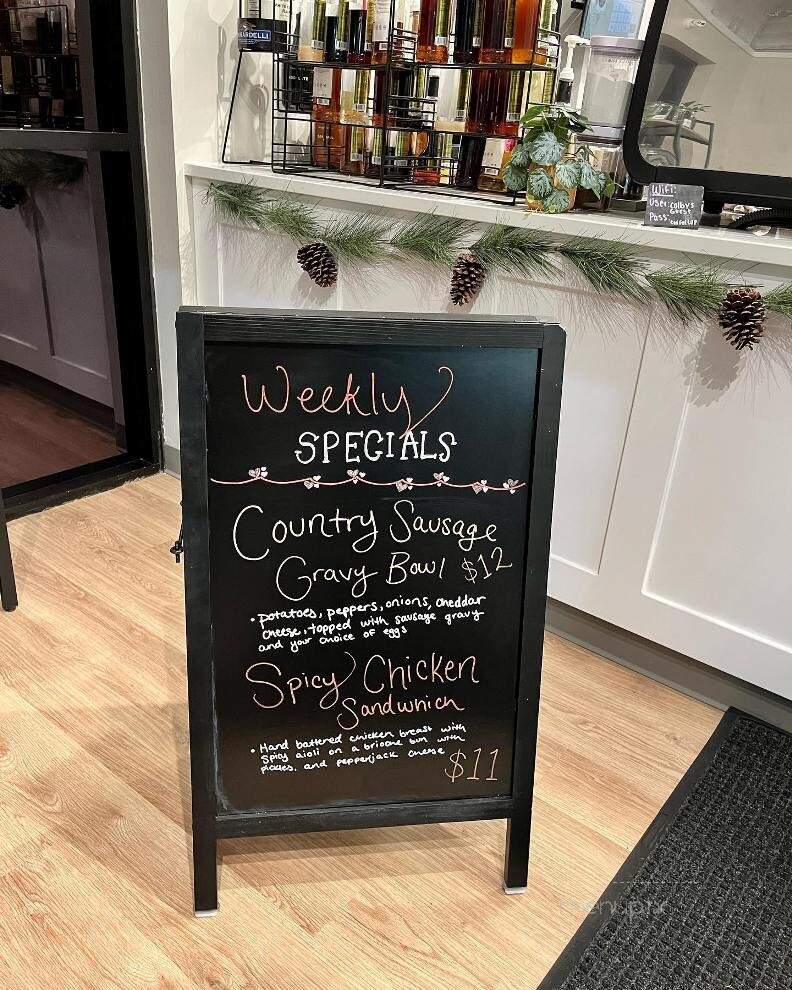 Weekly
SPECIALS
Country Sausage
Gravy Bowl $12
• potatoes, peppers, onions, cheddar
cheese, topped with sausage gravy
and your choice of eggs
Spicy Chicken
Sandwhich
• Hand battered chicken breast with
spicy aioli on a brioche bun with
pickles, and pepperjack cheese
$11
WiFi:
User: Colby's
Guest
Pass: